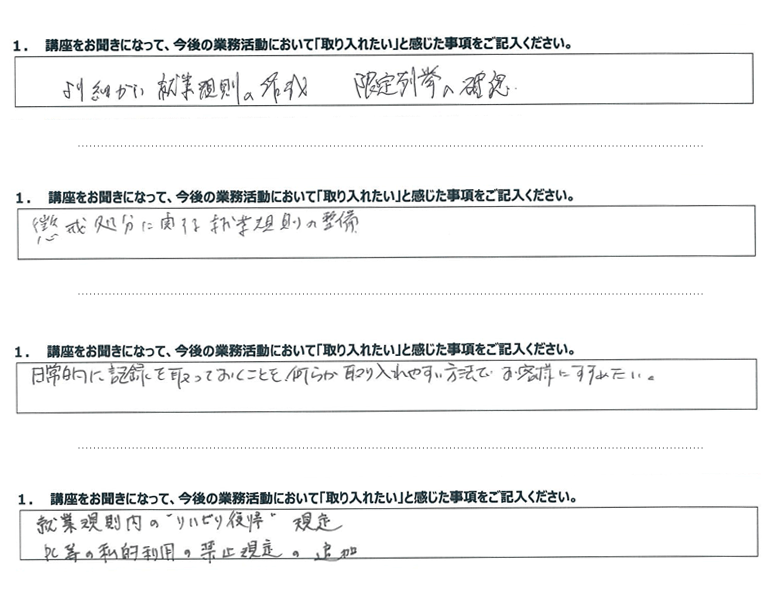 1. 講座をお聞きになって、今後の業務活動において「取り入れたい」と感じた事項をご記入ください。
より細かい就業規則の作成 限定列挙の確認.
1. 講座をお聞きになって、今後の業務活動において「取り入れたい」と感じた事項をご記入ください。
懲戒処分に関する就業規則の整備
1. 講座をお聞きになって、今後の業務活動において「取り入れたい」と感じた事項をご記入ください。
日常的に記録を取っておくことを、何らか取り入れやすい方法でお客様にすすめたい。
1. 講座をお聞きになって、今後の業務活動において「取り入れたい」と感じた事項をご記入ください。
就業規則内の"リハビリ復帰"規定
PC等の私的利用の禁止規定の追加